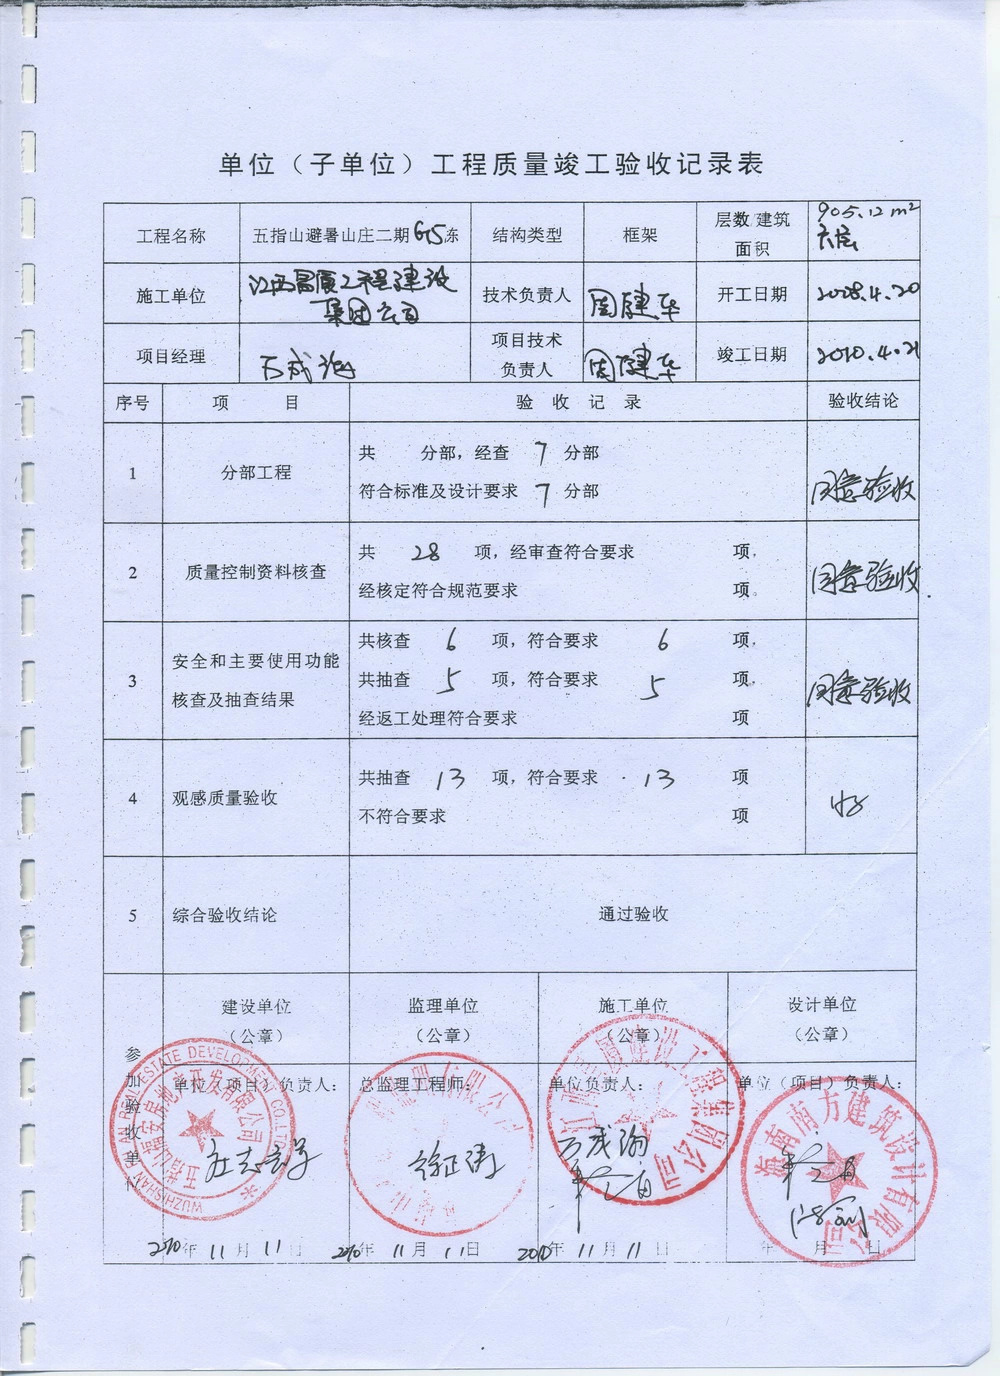 单位（子单位）工程质量竣工验收记录表
工程名称 五指山避暑山庄二期 G15东 结构类型 框架 层数/建筑面积 905.12m² 六层
施工单位 江西昌厦工程建设集团公司 技术负责人 周健华 开工日期 2008.4.20
项目经理 万成渝 项目技术负责人 周健华 竣工日期 2010.4.21
序号 项 目 验 收 记 录 验收结论
1 分部工程 共 分部，经查 7 分部
符合标准及设计要求 7 分部 同意验收
2 质量控制资料核查 共 28 项，经审查符合要求 项，
经核定符合规范要求 项。 同意验收
3 安全和主要使用功能
核查及抽查结果 共核查 6 项，符合要求 6 项，
共抽查 5 项，符合要求 5 项，
经返工处理符合要求 项 同意验收
4 观感质量验收 共抽查 13 项，符合要求 13 项
不符合要求 项 好
5 综合验收结论 通过验收
参加验收单位
建设单位
（公章） 监理单位
（公章） 施工单位
（公章） 设计单位
（公章）
单位（项目）负责人： 总监理工程师： 单位负责人： 单位（项目）负责人：
ESTATE DEVELOPMENT CO.LTD
WUZHISHAN
房地产开发有限公司
海南南方建筑设计有限公司
徐正涛 万成渝
2010年 11月 11日 2010年 11月 11日 2010年 11月 11日 年 月 日